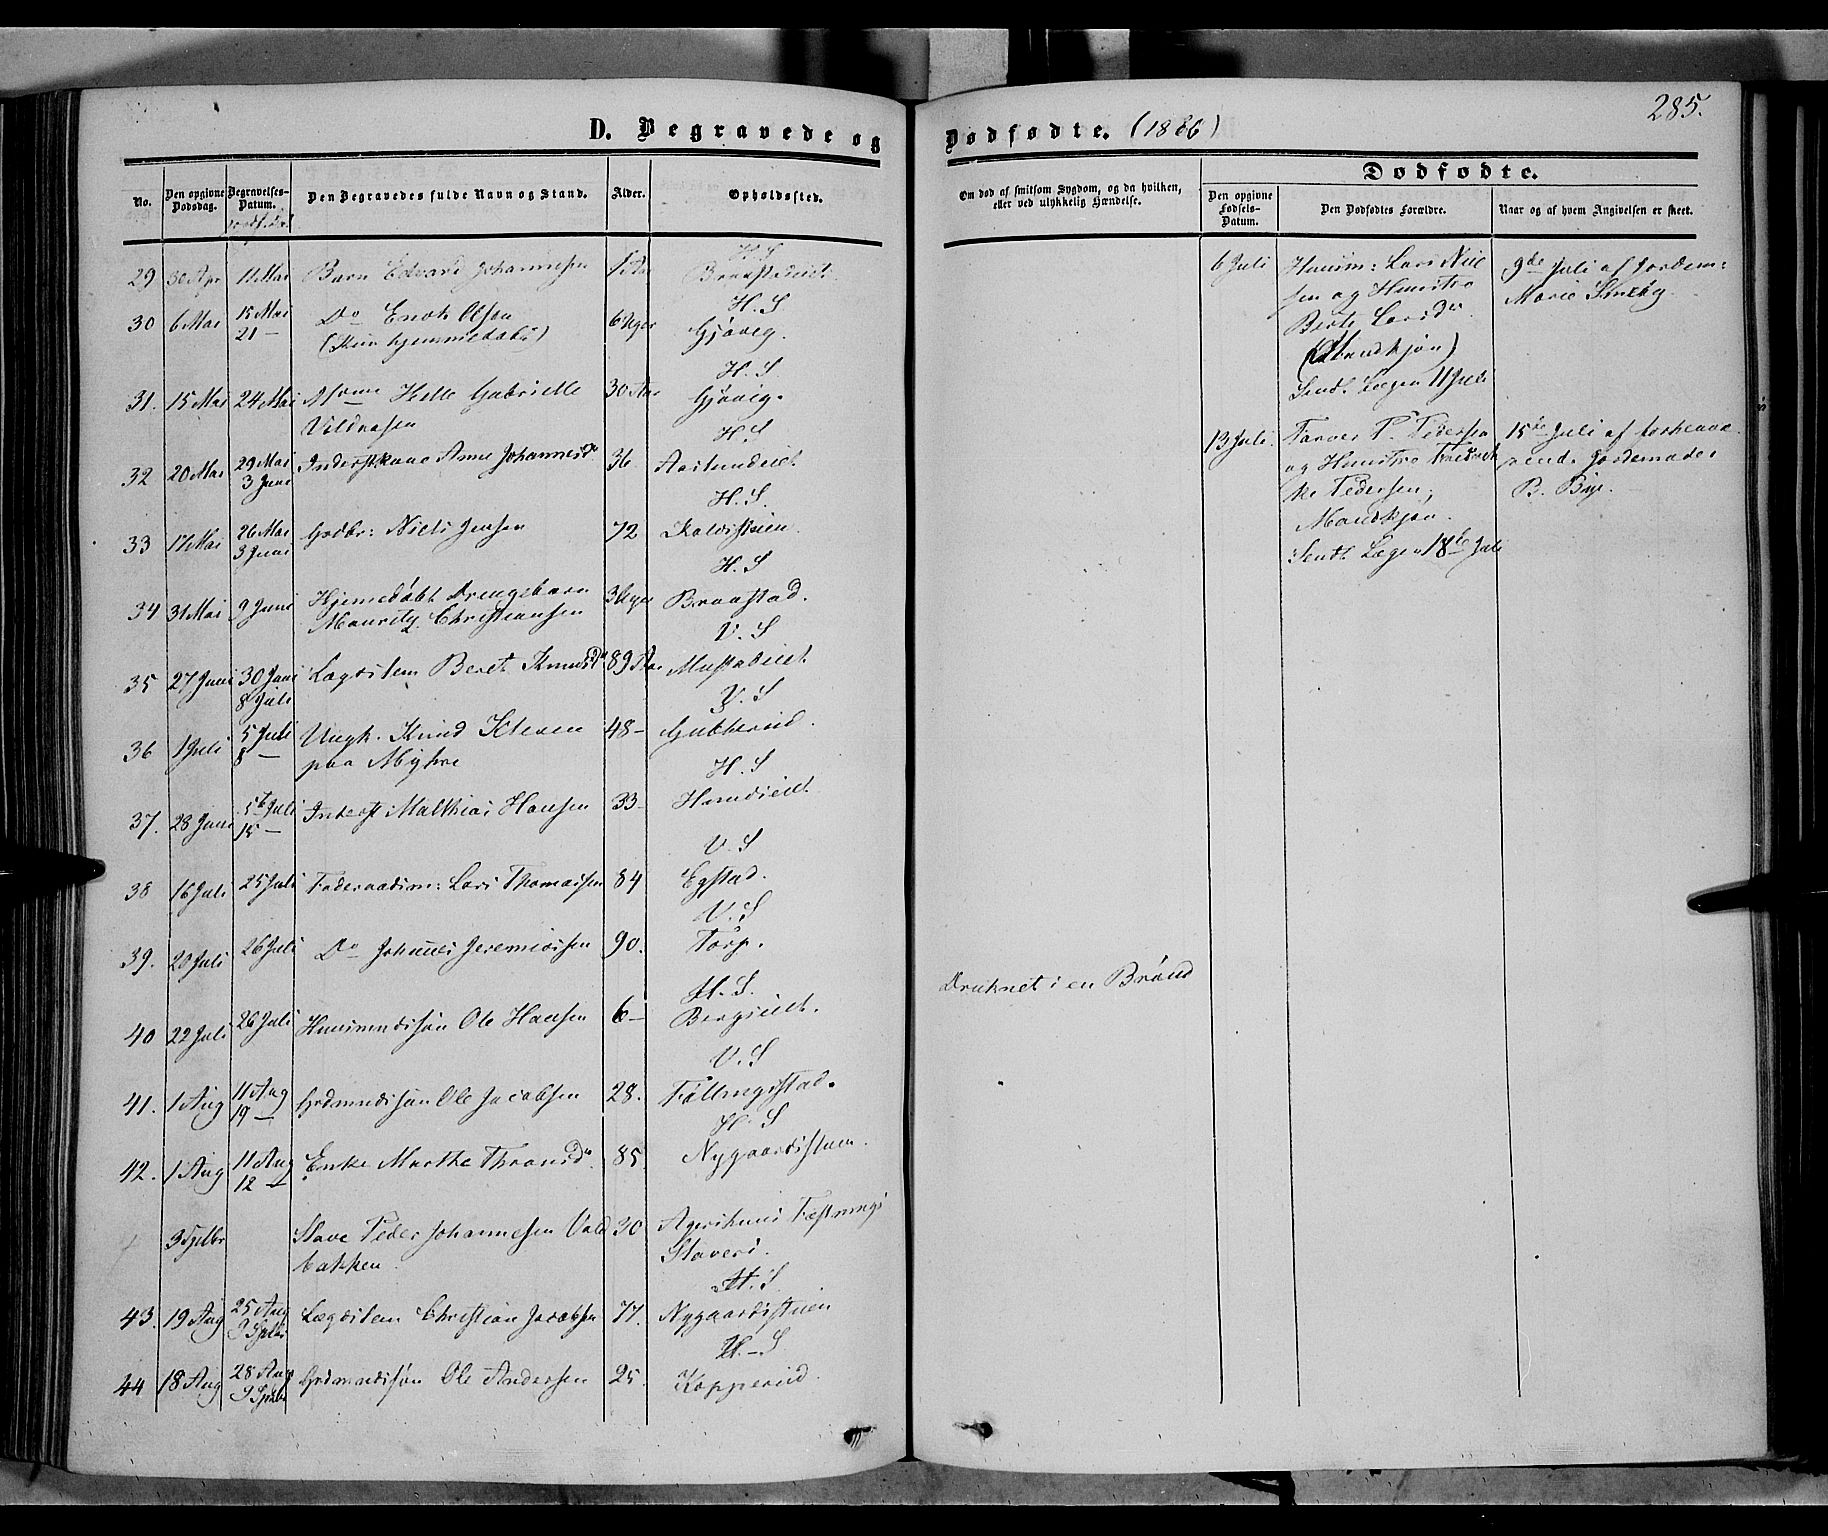 285.
D. Begravede og Dødfødte. (1866)
No.
Den opgivne Dødsdag.
Begravelses-Datum.
Den Begravedes fulde Navn og Stand.
Alder.
Opholdssted.
Om død af smitsom Sygdom, og da hvilken, eller ved ulykkelig Hændelse.
Dødfødte.
Den opgivne Fødsels-Datum.
Den Dødfødtes Forældre.
Naar og af hvem Angivelsen er skeet.
H. S
29 30 Apr 11 Mai Barn Edvard Johannesen 1 Aar Braastadeiet
H. S
30 6 Mai 15 Mai Do Enok Olsen 6 Uger Gjøvig.
21 — (Kun hjemmedøbt)
H. S
31. 15 Mai 24 Mai Helle Gabrielle 30 Aar Gjøvig.
Vildnæsen
H. S
32 20 Mai 29 Mai Inderstkone Anne Johannesdr 36
3 Juni
H. S.
33 17 Mai 26 Mai Grdbr: Niels Jensen 72
3 Juni
H. S
34 31 Mai 9 Juni Hjemedøbt Drengebarn 3 Uger Braastad.
Mauritz Christiansen
V. S
35 27 Juni 30 Juni Lægdslem Beret Knudsdr 89 Aar Mustadeiet
8 Juli
V. S
36 1 Juli 5 Juli Ungk. Knud Iversen 48 –
8 — paa Myhre
H. S
37. 28 Juni 5te Juli Inderst Matthias Hansen 33 – Hundseiet
15 —
V. S
38 16 Juli 25 Juli Føderaadsm: Lars Thomassen 84 Egstad.
V. S
39. 20 Juli 26 Juli Do Johannes Jeremiassen 90. Torp.
H. S.
40 22 Juli 26 Juli Huusmandssøn Ole Hansen 6 — Bergseiet. Druknet i en Brønd
V. S
41. 1 Aug 11 Aug Grdmandssøn Ole Jacobsen 28.Føllingstad.
19 —
H. S
42. 1 Aug 11 Aug Enke Marthe Thronsdr. 85. Nygaardsstuen.
12 —
3 Sptbr Slave Peder Johannesen Vold 30 Agershuus Festnings
bakken Slaveri.
H. S
43. 19 Aug 25 Aug Lægdslem Christian Jacobsen 77. Nygaardsstuen
9 Sptbr
H. S
44 18 Aug 28 Aug Grdmandssøn Ole Andersen 25. Kopperud.
9 Sptbr
6 Juli Huusm: Lars Niel 9de Juli af Jordem:
sen og Hustru Marie Smeby.
Berte Larsdr.
(Mandkjøn)
Sendt Lægen 11 Juli
13 Juli. Farver P. Pedersen 15de Juli af forhenvæ
og Hustru Fredrik rende Jordemoder
ke Pedersen, B. Bye.
Mandkjøn.
Sendt Lægen 18de Juli